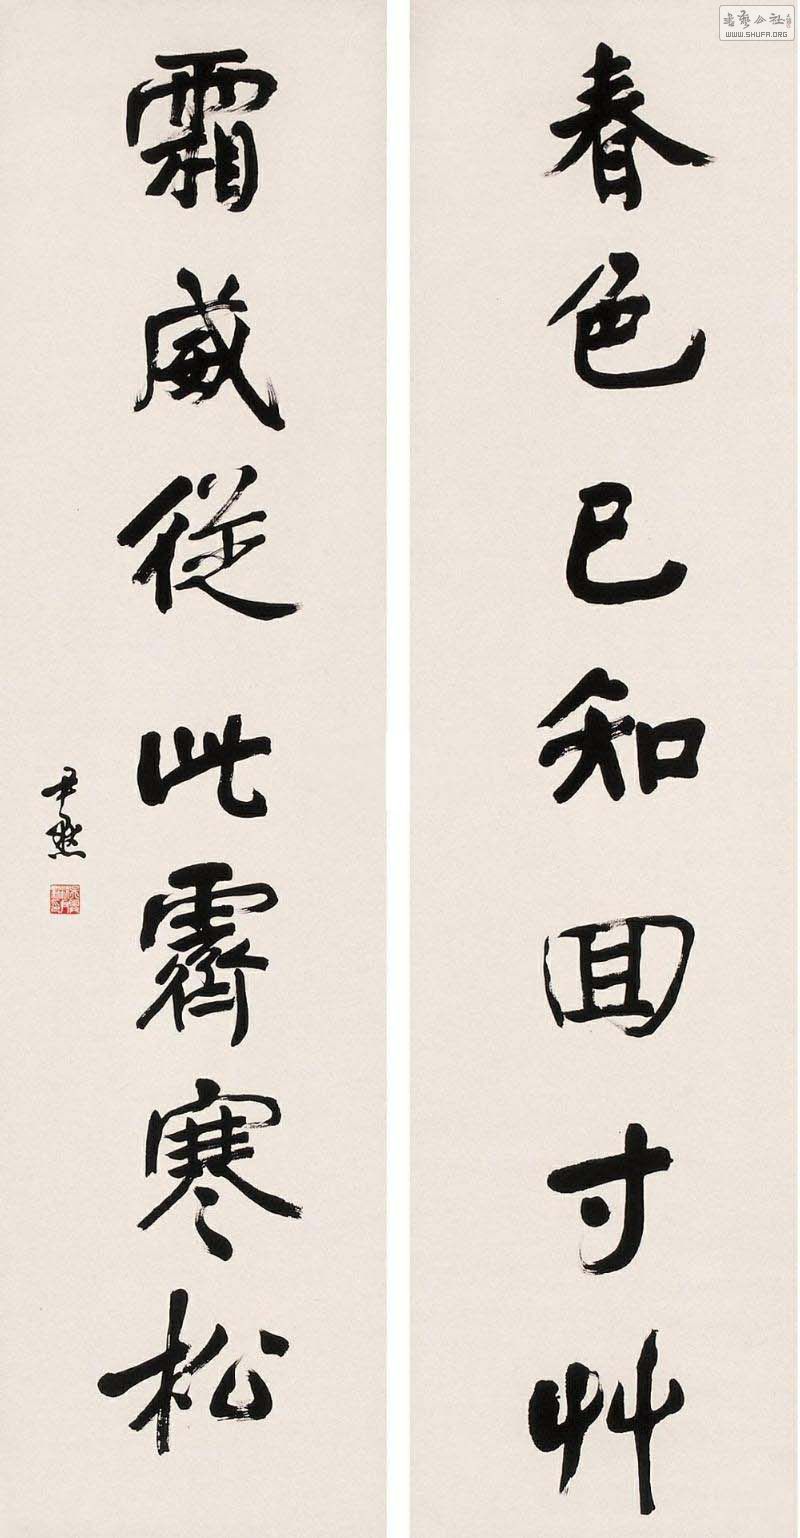 春色已知回寸艸
霜威從此霽寒松
尹默
書藝公社
WWW.SHUFA.ORG